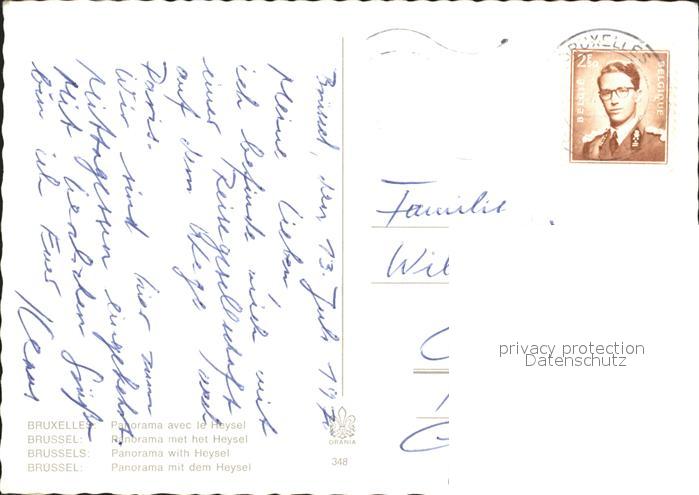 Brüssel, den 13. Juli 197
Meine Lieben
ich befinde mich mit
einer Reisegesellschaft
auf dem Wege nach
Paris.
Wir sind hier zum
Mittagessen eingekehrt.
Mit herzlichen Grüßen
bin ich Euer Klaus
BRUXELLES
2F50
BELGIE BELGIQUE
Familie
Wil
privacy protection
Datenschutz
BRUXELLES: Panorama avec le Heysel
BRUSSEL: Panorama met het Heysel
BRUSSELS: Panorama with Heysel
BRÜSSEL: Panorama mit dem Heysel
ORANIA
348